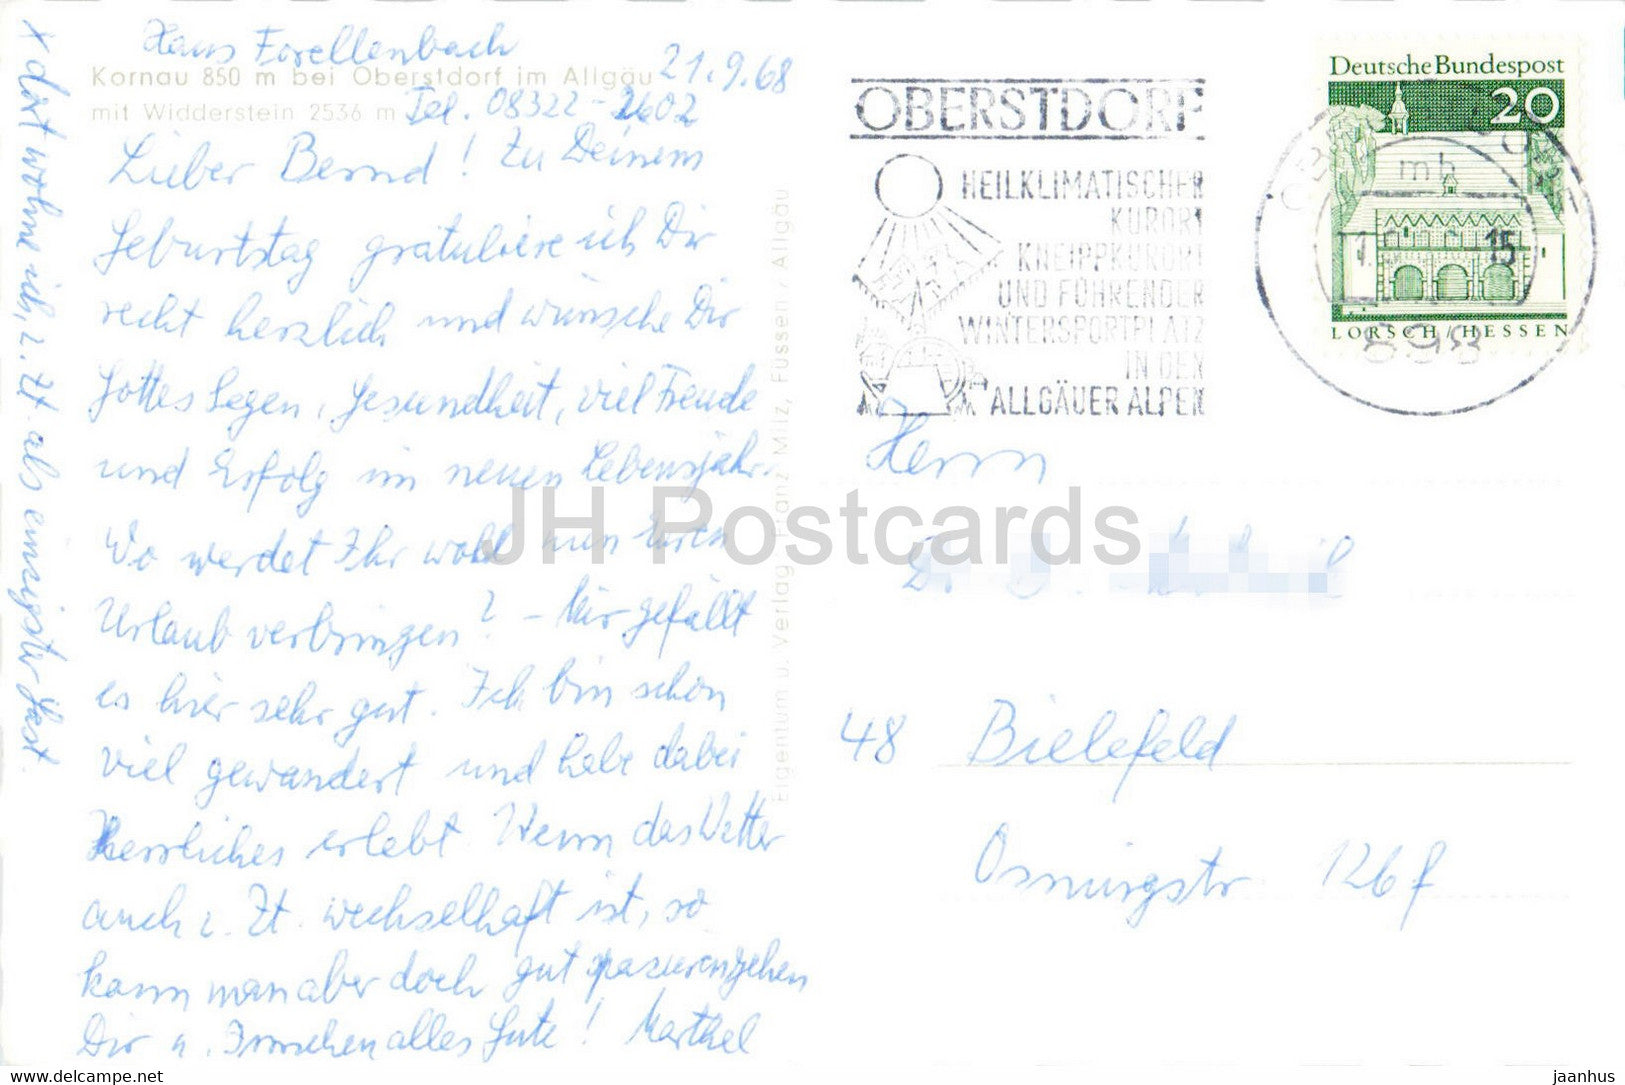 Haus Forellenbach
Kornau 850 m bei Oberstdorf im Allgäu 21.9.68
mit Widderstein 2536 m Tel. 08322-2602
Lieber Bernd! Zu Deinem
Geburtstag gratuliere ich Dir
recht herzlich und wünsche Dir
Gottes Segen, Gesundheit, viel Freude
und Erfolg im neuen Lebensjahr.
Wo werdet Ihr wohl nun Euren
Urlaub verbringen? - Mir gefällt
es hier sehr gut. Ich bin schon
viel gewandert und habe dabei
Herrliches erlebt. Wenn das Wetter
auch z. Zt. wechselhaft ist, so
kann man aber doch gut spazierengehen
Dir u. Frauchen alles Gute!
x dort wohne ich, z. Zt. als einzigster Gast.
Eigentum u. Verlag Franz Milz, Füssen / Allgäu
OBERSTDORF
HEILKLIMATISCHER
KURORT
KNEIPPKURORT
UND FÜHRENDER
WINTERSPORTPLATZ
IN DEN
ALLGÄUER ALPEN
Deutsche Bundespost
20
mh
15
LORSCH/HESSEN
898
Herrn
Dr
48 Bielefeld
Osningstr. 126f
JH Postcards
hippostcard.com
jaanhus